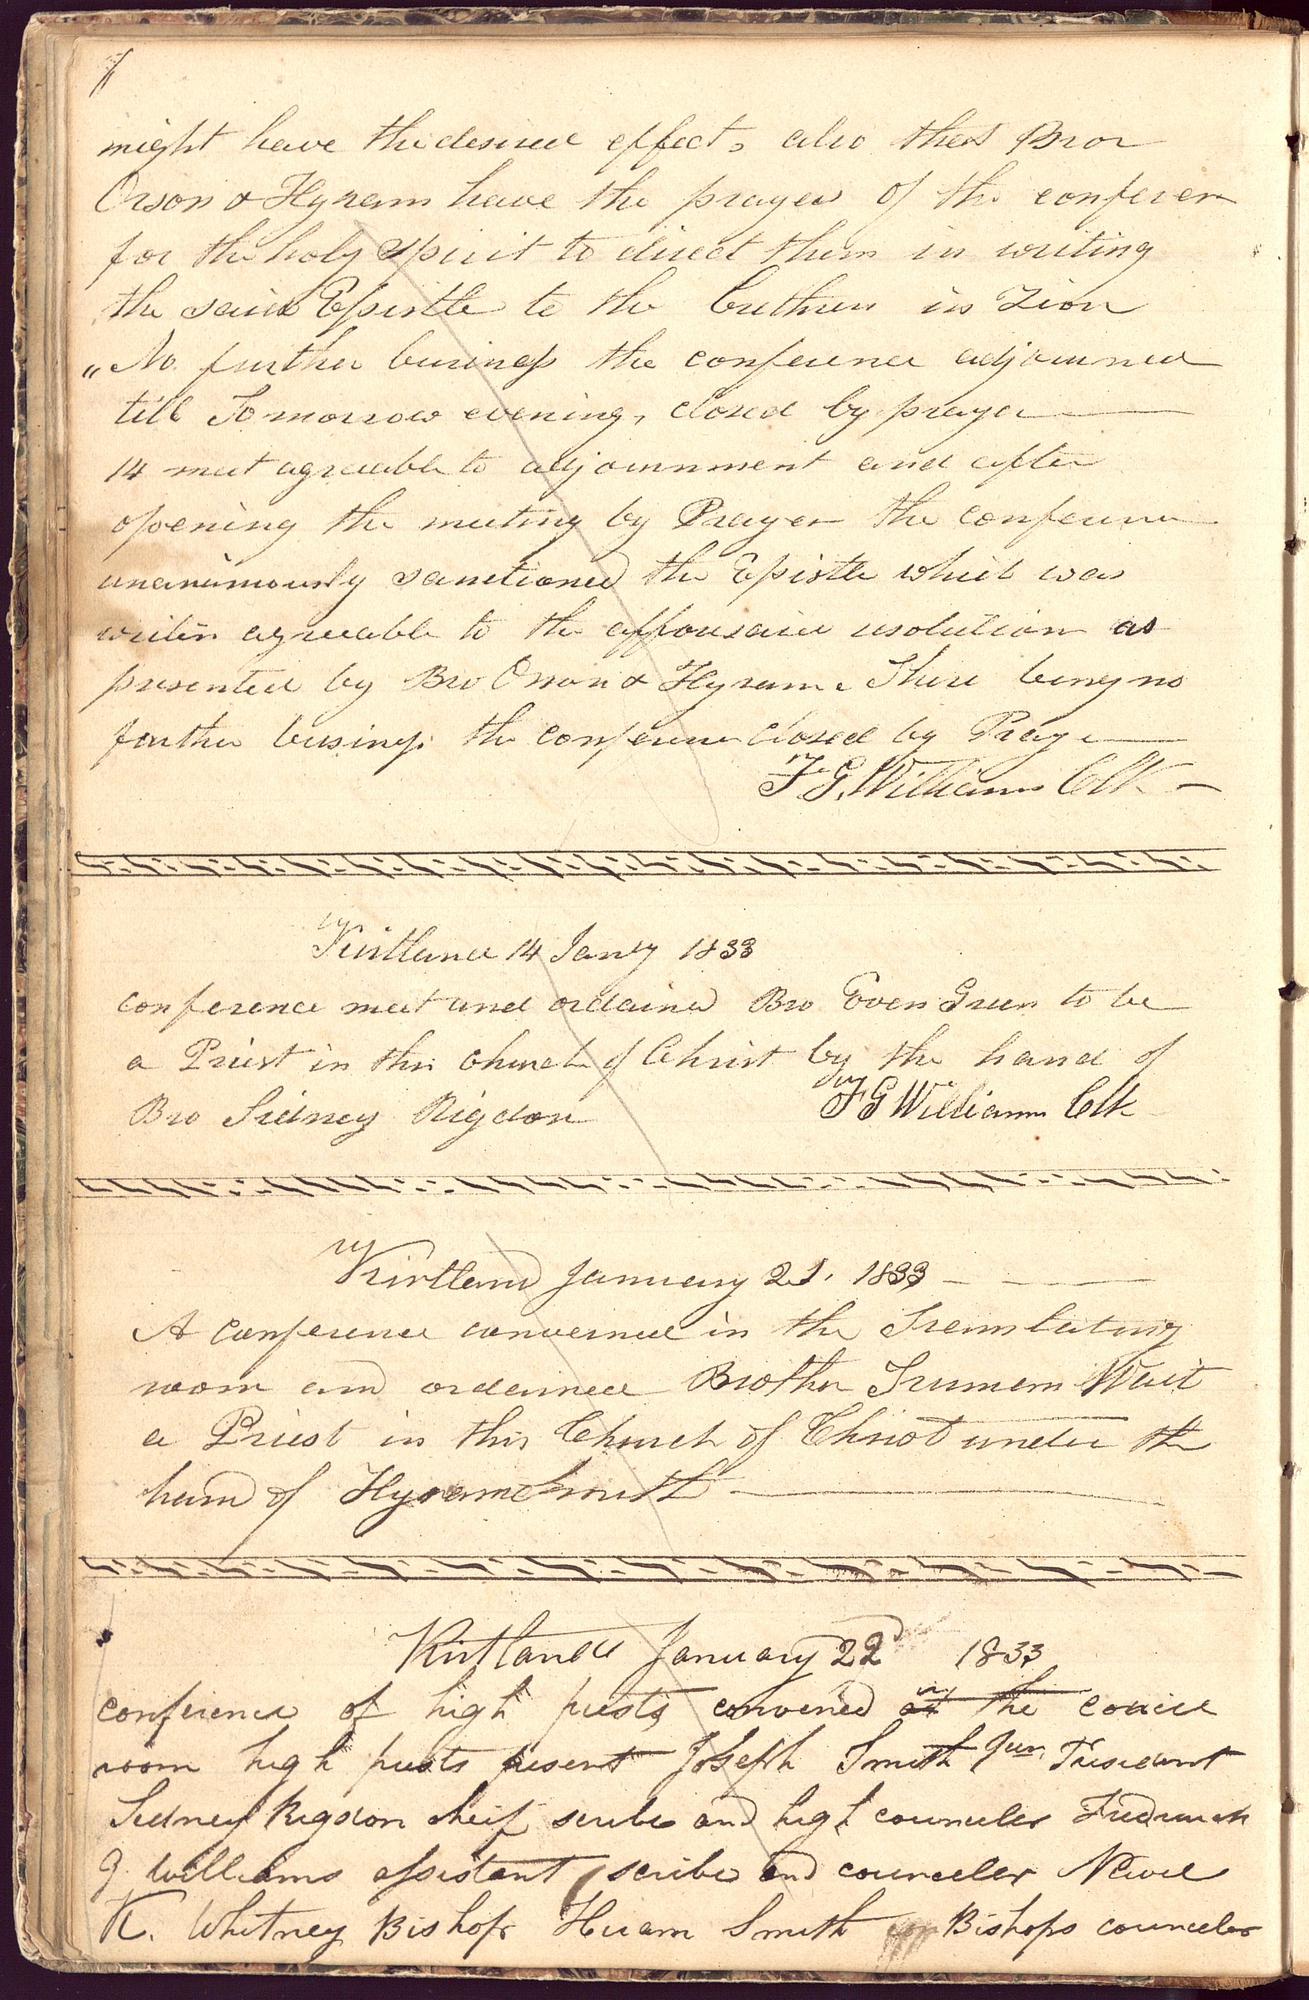 might have the desired effect, also that Bror
Orson & Hyram have the prayer of the conferen
for the holy spirit to direct them in writing
the said Epistle to the brethren in Zion
" No further business the conference adjourned
till Tomorrow evening, closed by prayer
14 meet agreeable to adjournment and after
opening the meeting by Prayer the conference
unanimously sanctioned the Epistle which was
writin agreeable to the affousaid resolution as
presented by Bro Orson & Hyram. There being no
further business the conference closed by Prayer
F. G. Williams Clk
Kirtland 14 Jany 1833
conference meet and ordained Bro Even Green to be
a Priest in this Church of Christ by the hand of
Bro Sidney Rigdon
F G Williams Clk
Kirtland January 21. 1833
A conference convened in the Translating
room and ordained Brother Trumem Wait
a Priest in this Church of Christ under the
hand of Hyram Smith
Kirtland January 22d 1833
conference of high priests convened in at the council
room high priests present Joseph Smith Jun, President
Sidney Rigdon cheif scribe and high counceler Fredrick
G. Williams assistant scribe and counceler Newel
K. Whitney Bishop Hiram Smith Bishops counceler